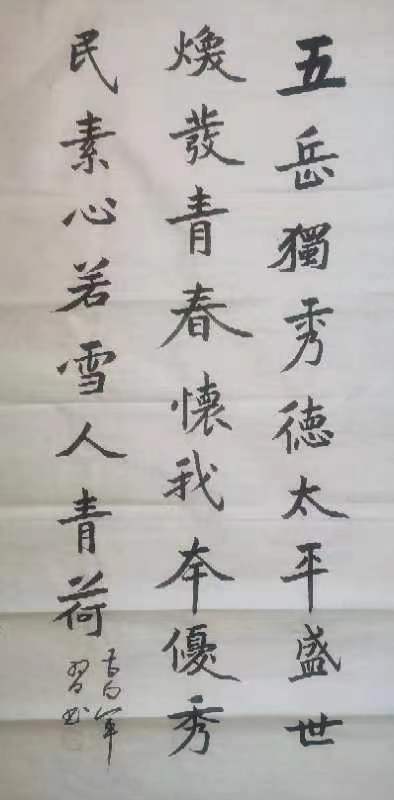 五岳獨秀德太平盛世
煥發青春懷我本優秀
民素心若雪人青荷
習書